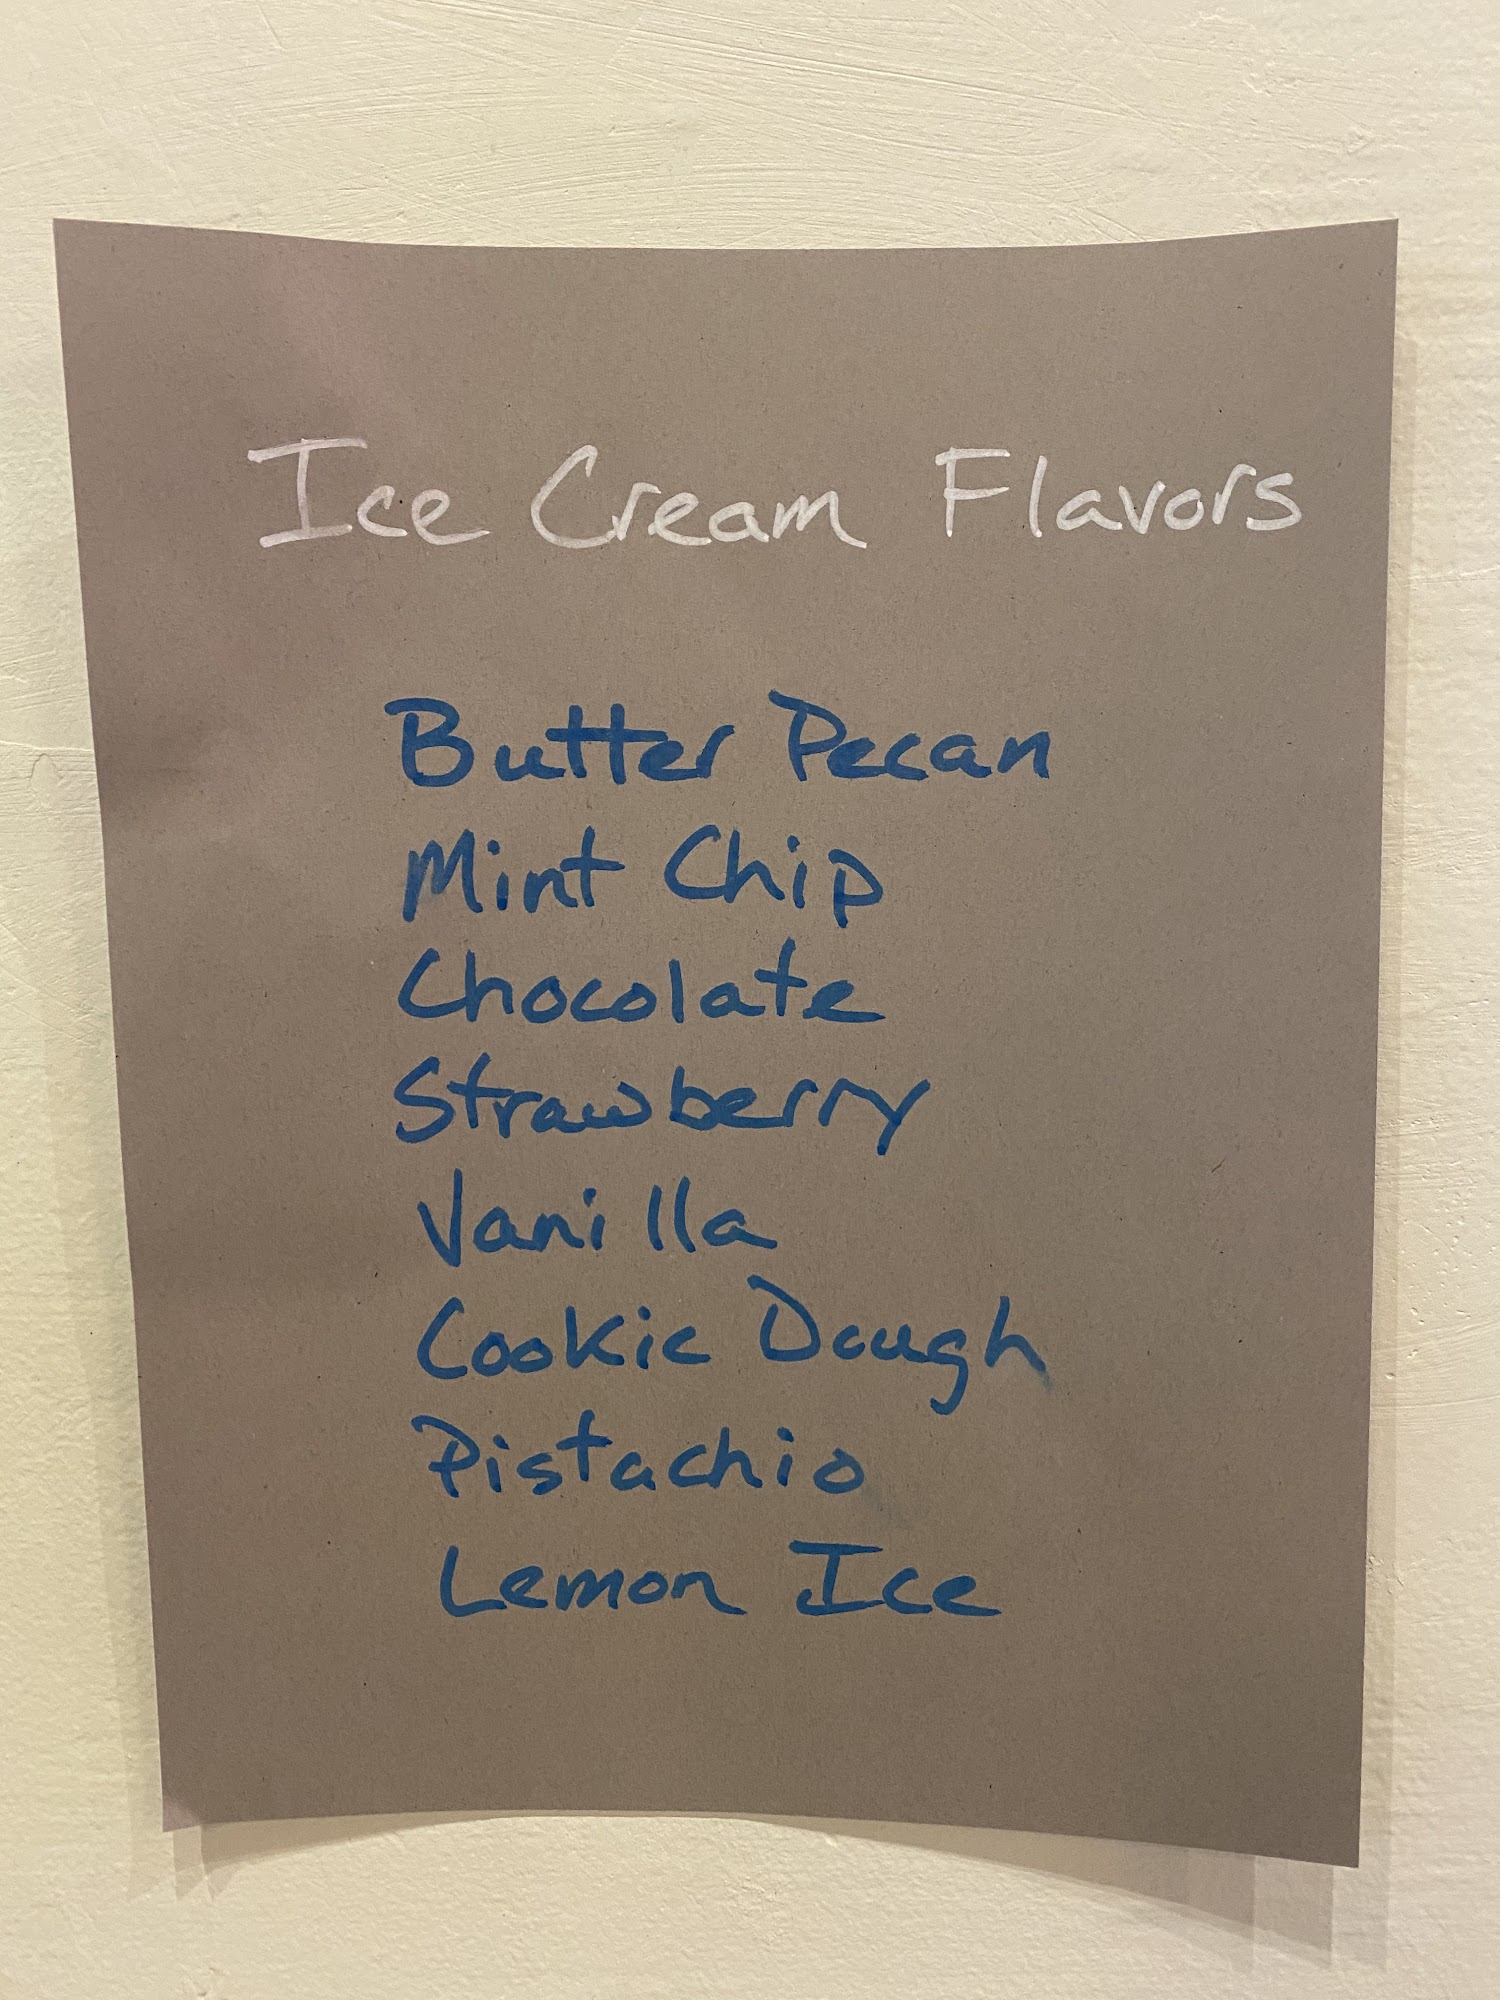 Ice Cream Flavors
Butter Pecan
Mint Chip
Chocolate
Strawberry
Vanilla
Cookie Dough
Pistachio
Lemon Ice